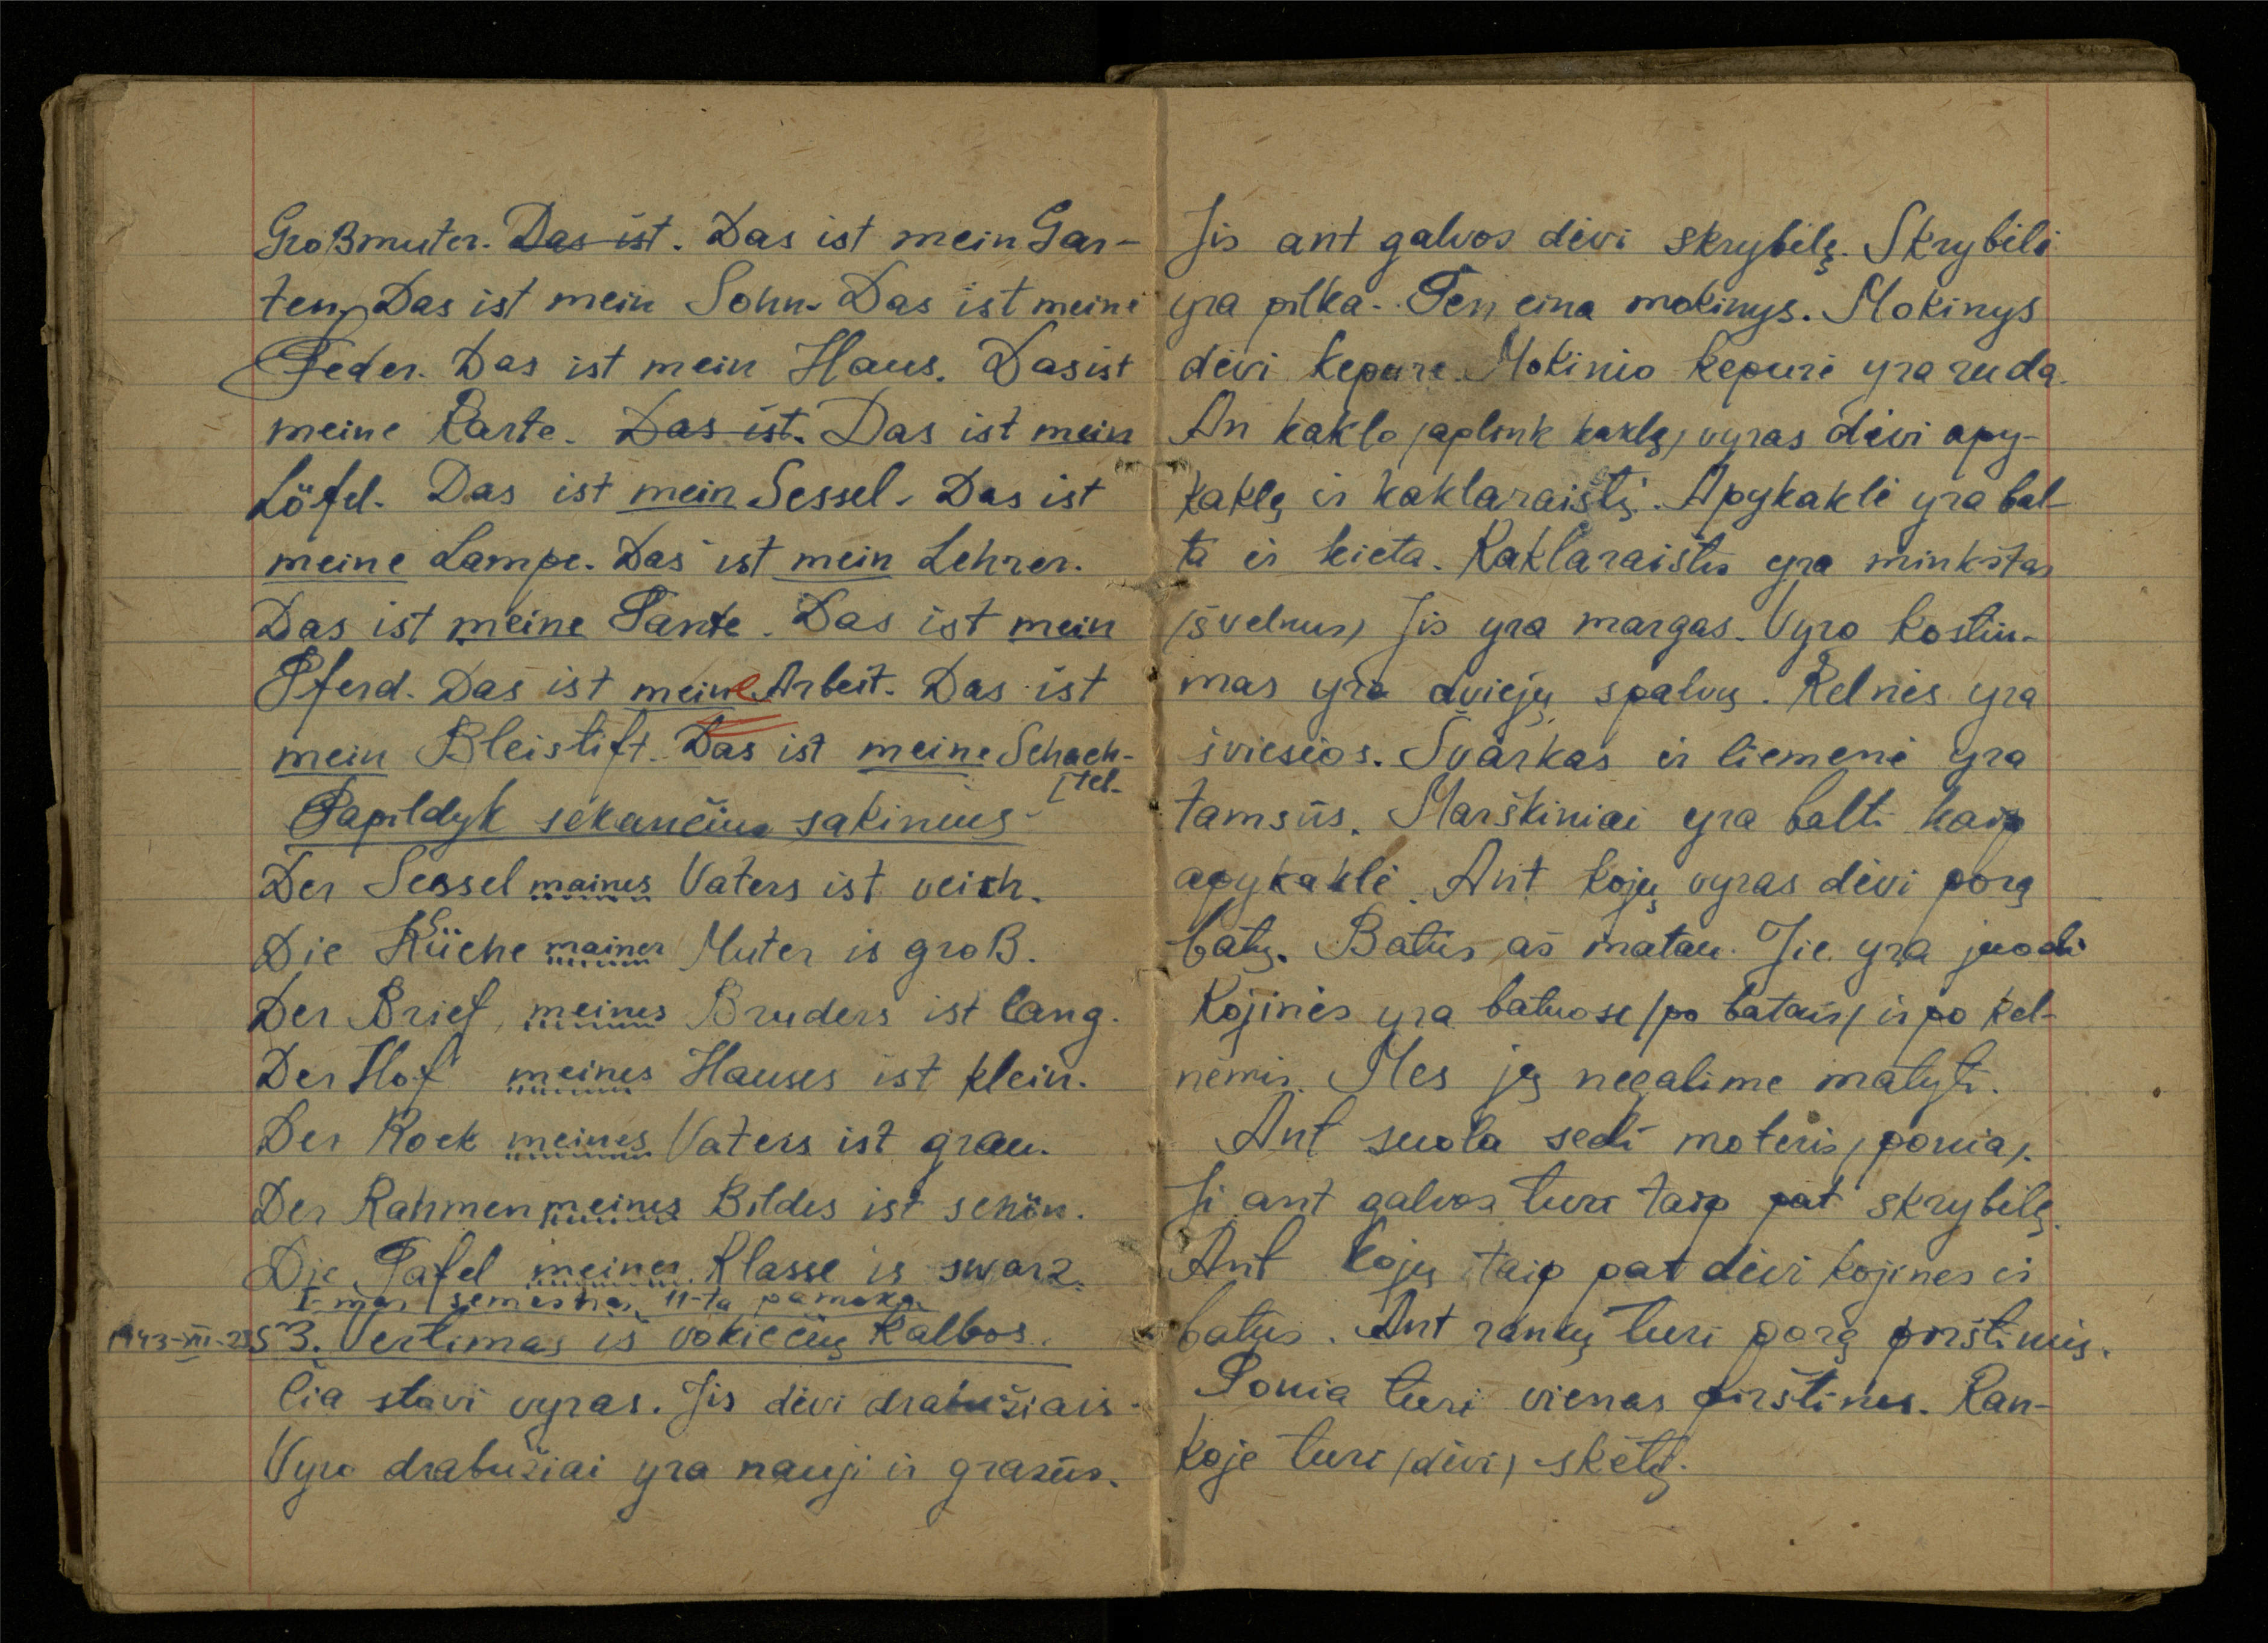 Großmuter. Das ist. Das ist mein Gar-
ten. Das ist mein Sohn. Das ist meine
Feder. Das ist mein Haus. Das ist
meine Karte. Das ist. Das ist mein
Löfel. Das ist mein Sessel. Das ist
meine Lampe. Das ist mein Lehrer.
Das ist meine Tante. Das ist mein
Pferd. Das ist meine Arbeit. Das ist
mein Bleistift. Das ist meine Schach-
[tel.
Papildyk sekančius sakinius
Der Sessel maines Vaters ist veich.
Die Küche mainer Muter is groß.
Der Brief, meines Bruders ist lang.
Der Hof meines Hauses ist klein.
Der Rock meines Vaters ist grau.
Der Rahmen meines Bildes ist schön.
Die Tafel meiner Klasse is swarz.
I-mas semestras, 11-ta pamoka.
1943-XII-23 53. Vertimas iš vokiečių kalbos.
Čia stovi vyras. Jis dėvi drabužiais.
Vyro drabužiai yra nauji ir grazūs.
Jis ant galvos dėvi skrybėlę. Skrybėlė
yra pilka. Ten eina mokinys. Mokinys
dėvi kepure. Mokinio kepurė yra ruda.
An kaklo /aplink kaklą/ vyras dėvi apy-
kaklę ir kaklaraištį. Apykaklė yra bal-
ta ir kieta. Kaklaraištis yra minkštas
/švelnus/ Jis yra margas. Vyro kostiu-
mas yra dviejų spalvų. Kelnės yra
šviesios. Švarkas ir liemenė yra
tamsūs. Marškiniai yra balti kaip
apykaklė. Ant kojų vyras dėvi porą
batų. Batus aš matau. Jie yra juodi
Kojinės yra batuose /po batais/ ir po kel-
nėmis. Mes jų negalime matyti.
Ant suola sedi moteris /ponia/.
Ji ant galvos turi taip pat skrybėlę.
Ant kojų taip pat dėvi kojines ir
batus. Ant rankų turi porą pirštinių.
Ponia turi vienas pirštines. Ran-
koje turi /dėvi/ skėtį.